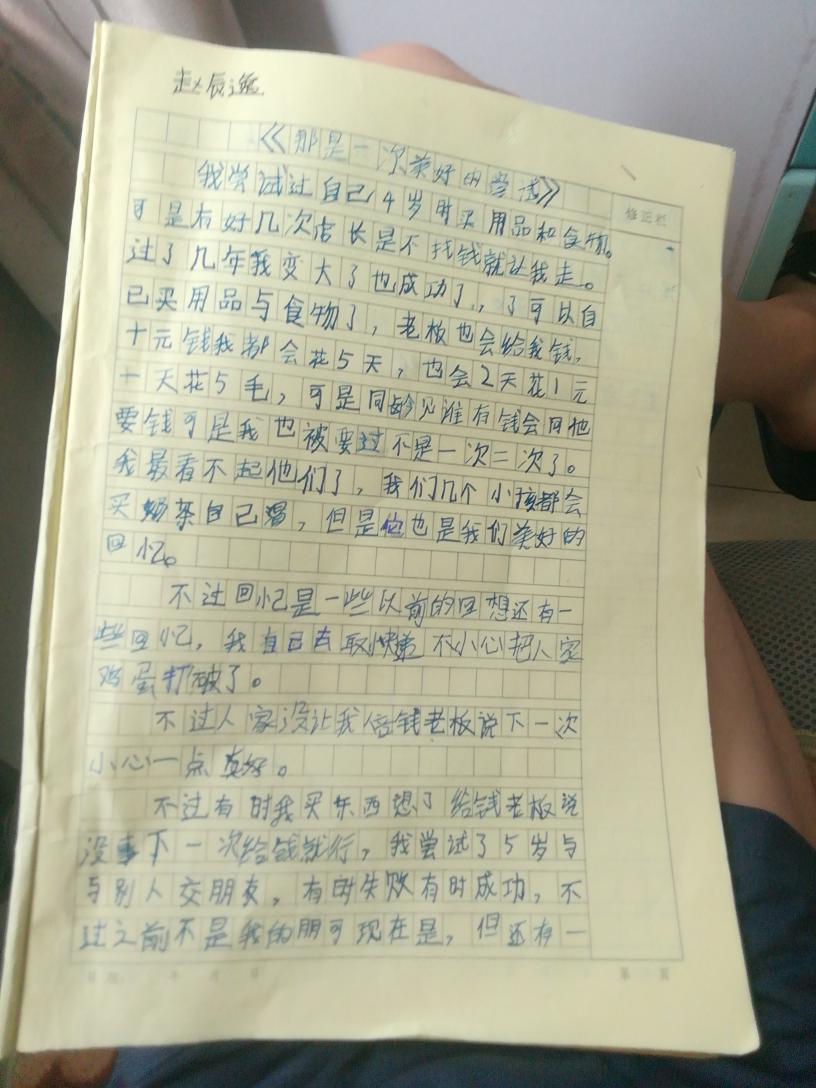 赵辰逸
《那是一次美好的尝试》
修正栏
我尝试过自己4岁时买用品和食物。
可是有好几次店长是不找钱就让我走。
过了几年我变大了也成功了，了可以自
己买用品与食物了，老板也会给我钱，
十元钱我都会花5天，也会2天花1元
一天花5毛，可是同龄见谁有钱会问他
要钱可是我也被要过不是一次二次了。
我最看不起他们了，我们几个小孩都会
买奶茶自己喝，但是他也是我们美好的
回忆。
不过回忆是一些以前的回想还有一
些回忆，我自己去取快递不小心把人家
鸡蛋打破了。
不过人家没让我倍钱老板说下一次
小心一点真好。
不过有时我买东西想了给钱老板说
没事下一次给钱就行，我尝试了5岁与
与别人交朋友，有时失败有时成功，不
过之前不是我的朋可现在是，但还有一
年 月 日
第 页